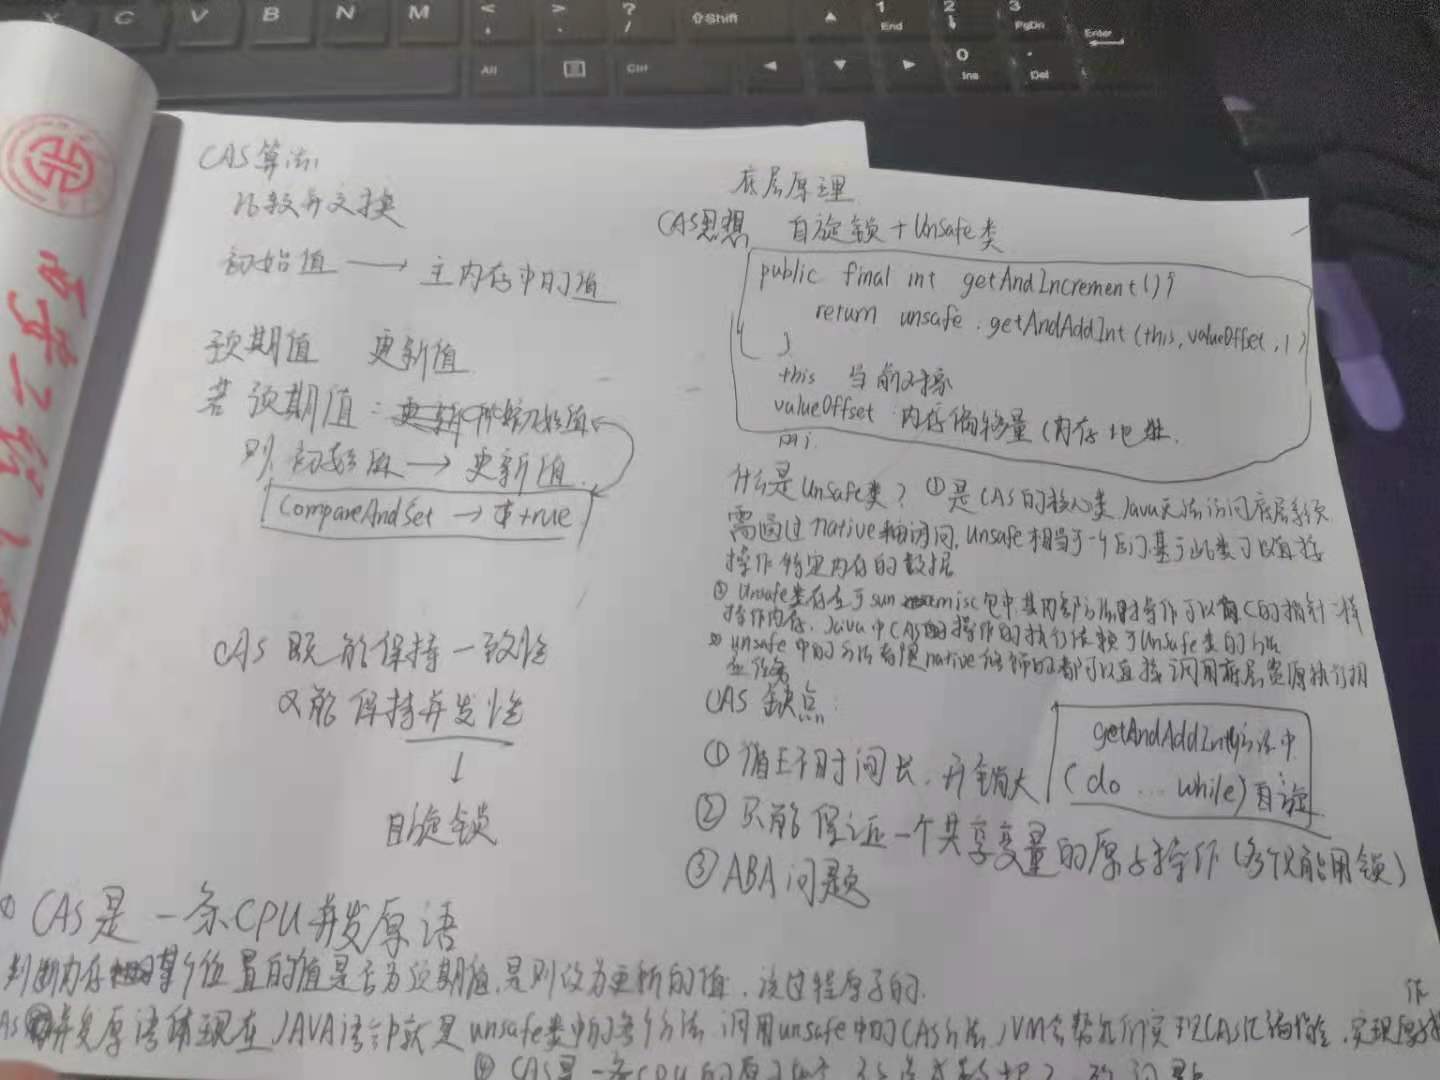 X C V B N M < , > . ? / ⇧Shift 1 End 2 3 PgDn Enter
Alt Ctrl 0 Ins . Del
CAS算法:
比较并交换
初始值 → 主内存中的值
预期值 更新值
若预期值 = 初始值
则初始值 → 更新值
CompareAndSet → true
CAS既能保持一致性
又能保持并发性
↓
自旋锁
底层原理
CAS思想 自旋锁 + Unsafe类
public final int getAndIncrement(){
return unsafe.getAndAddInt(this,valueOffset,1)
}
this 当前对象
valueOffset 内存偏移量(内存地址
什么是Unsafe类? ①是CAS的核心类 Java无法访问底层系统
需通过native来访问,Unsafe相当于一个后门,基于此类可以直接
操作特定内存的数据
② Unsafe类存在于sun misc包中,其内部方法操作可以像C的指针一样
操作内存,Java中CAS操作的执行依赖于Unsafe类的方法
③ unsafe中的方法都是native修饰的都可以直接调用底层资源执行相
应任务
CAS缺点:
①循环时间长,开销大
getAndAddInt方法中
(do ... while)自旋
②只能保证一个共享变量的原子操作(多个只能用锁)
③ABA问题
CAS是一条CPU并发原语
判断内存某个位置的值是否为预期值,是则改为更新的值,该过程原子的.
并发原语体现在JAVA语言中就是unsafe类中的各个方法 调用unsafe中的CAS方法,JVM会帮我们实现CAS汇编指令,实现原子操
作
④ CAS是一条CPU的原子